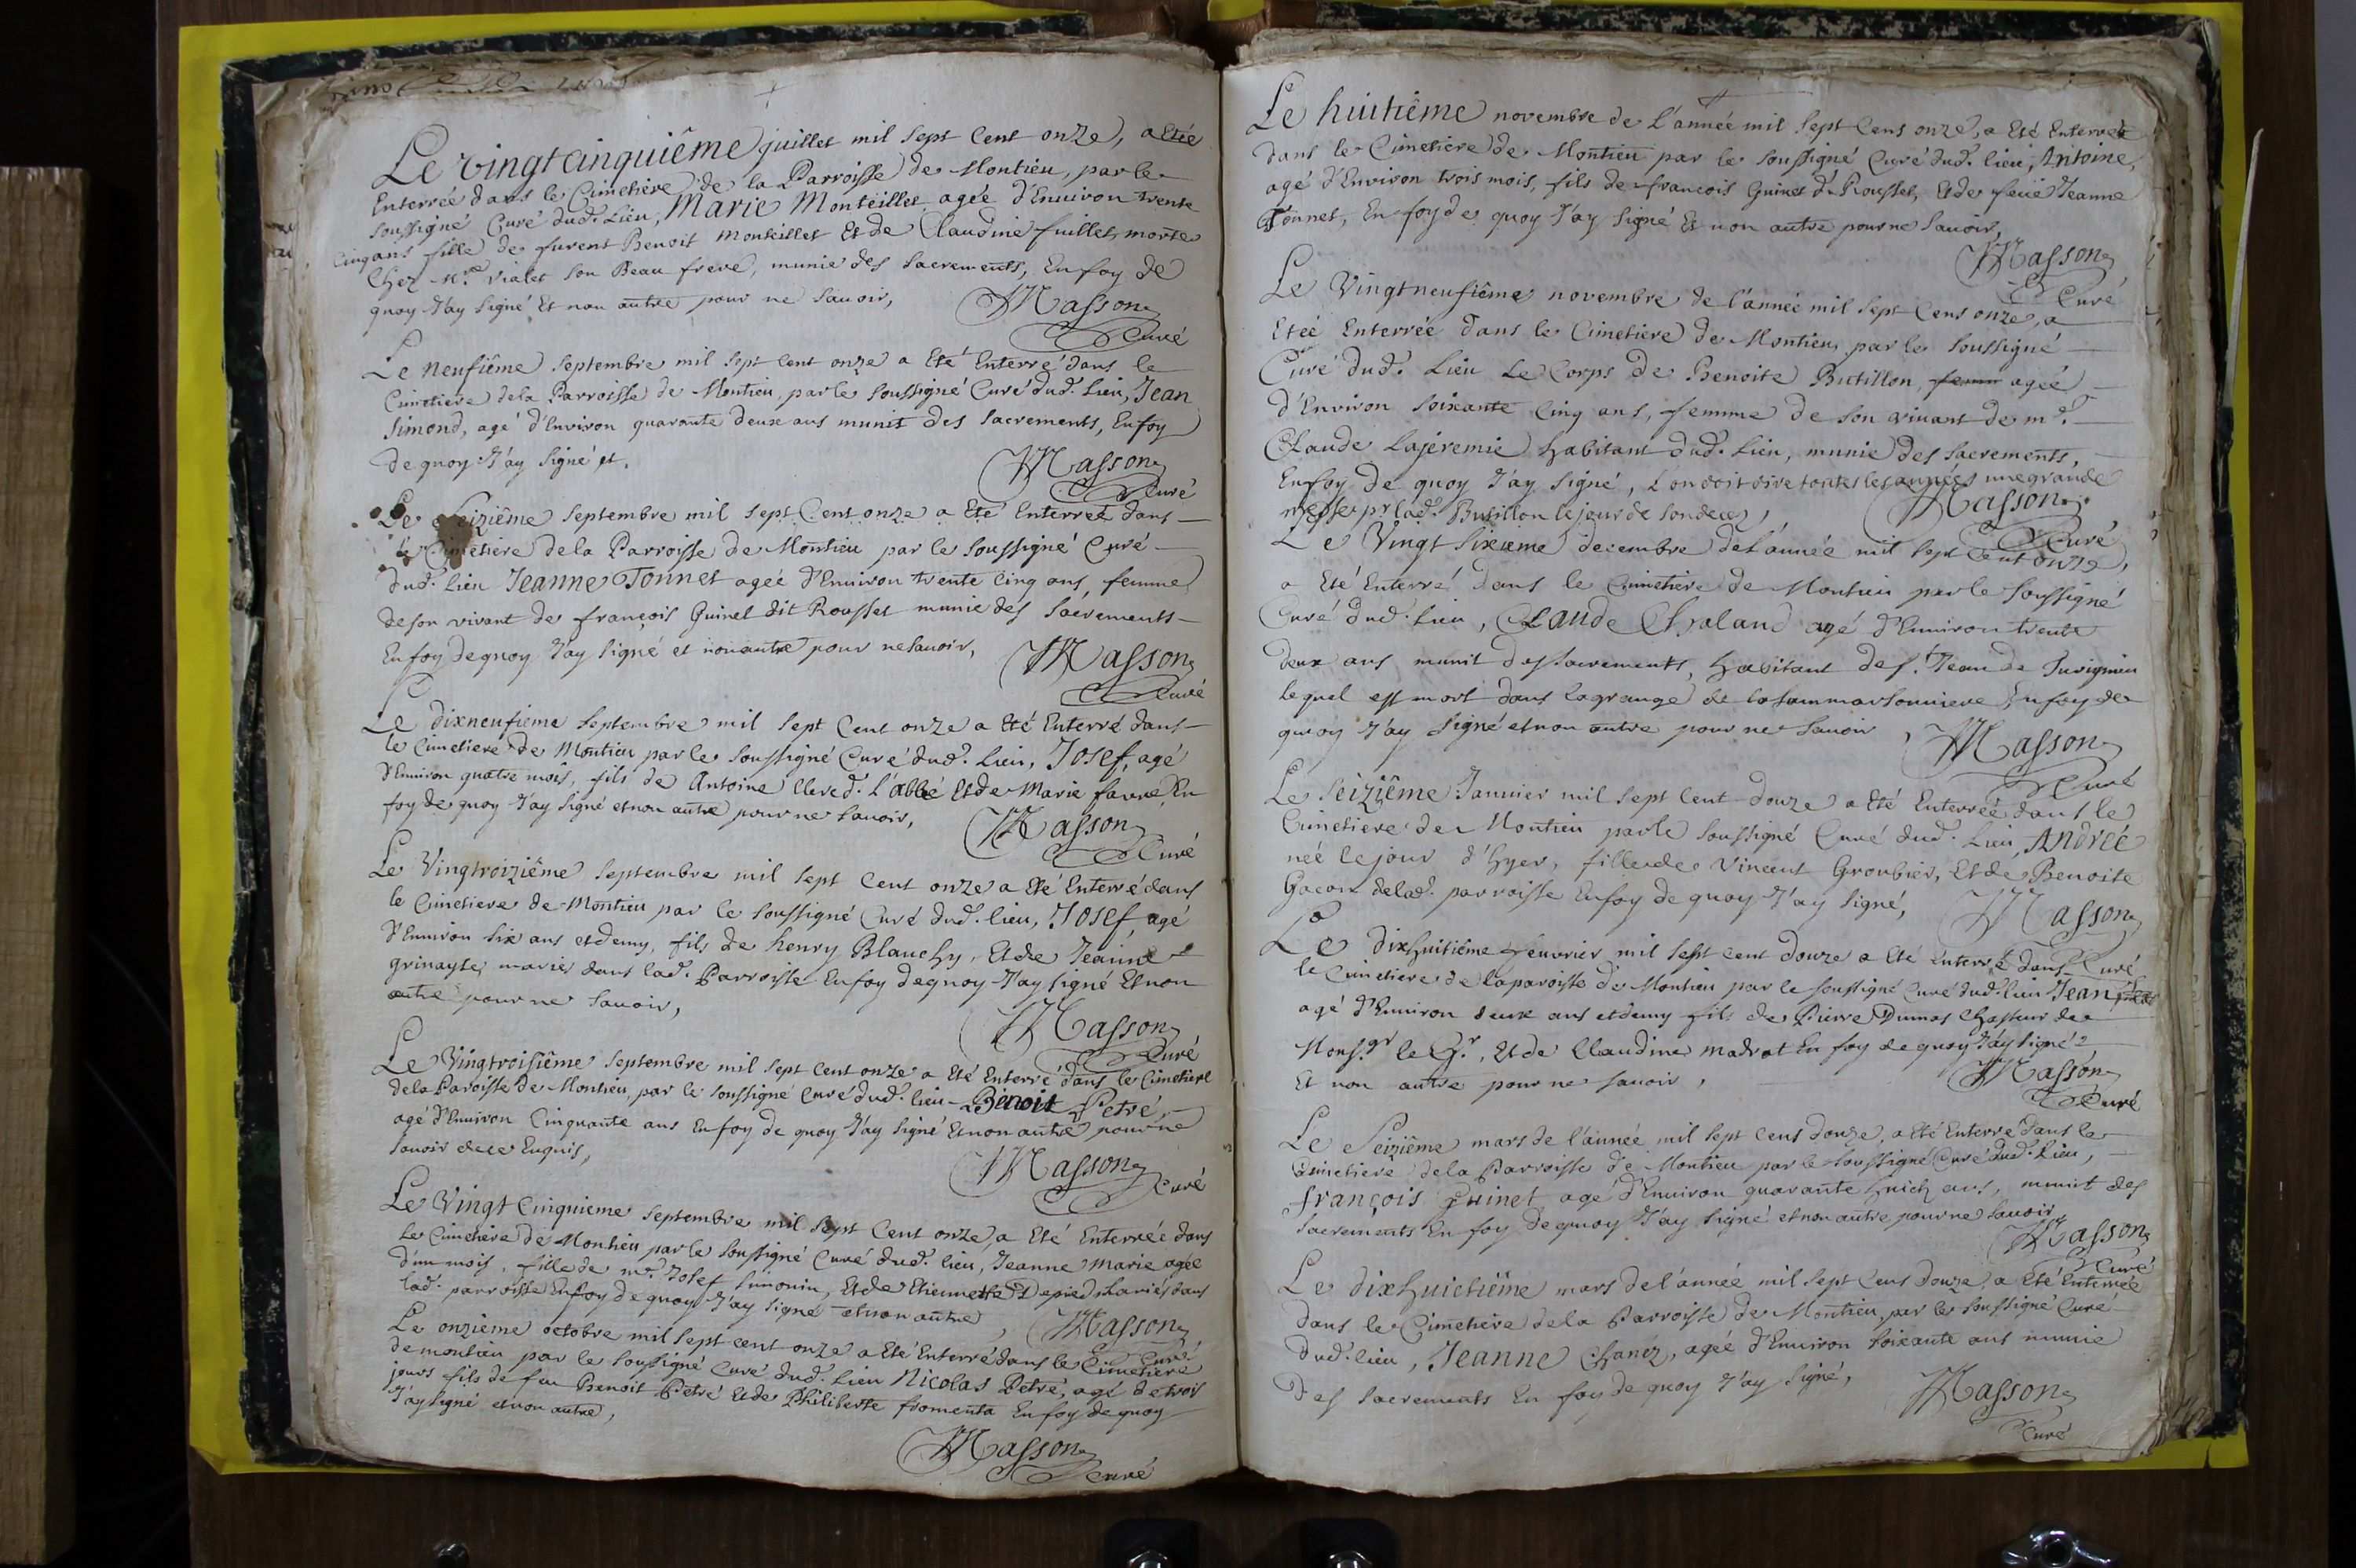 Le vingtcinquiême juillet mil sept cent onze, a Eteé
Enterreé dans le Cimetiére de la Parroisse de Montieu, par le
soussigné Curé dud. Lieu, Marie Monteillet ageé d'Enuiron trente
cinq ans fille de furent Benoit Monteillet Et de Claudine fuillet, morte
Chez Mre Vialet son Beau frere, munie des sacrements, En foy de
quoy J'ay signé Et non autre pour ne sauoir,
Masson
Curé
Le neufiême septembre mil sept cent onze a Eté Enterré dans le
Cimetiere dela Parroisse de Montieu, par le soussigné Curé dud. Lieu, Jean
Simond, agé d'Environ quarante deux ans munit des sacrements, En foy
de quoy J'ay signé et.
Masson
Curé
Le seiziême septembre mil sept Cent onze a Eté Enterreé dans
le Cimetiere dela Parroisse de Montieu par le soussigné Curé
dud. lieu Jeanne Tonnet ageé d'Enuiron trente cinq ans, femme
de son vivant de françois Guinet dit Rousset munie des sacrements
En foy de quoy J'ay signé et non autre pour ne sauoir,
Masson
Curé
Le dixneufiéme septembre mil sept Cent onze a Eté Enterré dans
le Cimetiere de Montieu par le soussigné Curé dud. Lieu, Josef, agé
d'Enuiron quatre mois, fils de Antoine Clere d. L'abbé Et de Marie favre En
foy de quoy J'ay signé et non autre pour ne sauoir,
Masson
Curé
Le Vingtroiziême septembre mil sept Cent onze a Eté Enterré dans
le Cimetiere de Montieu par le soussigné Curé dud. lieu, Josef, agé
d'Enuiron six ans et demy, fils de henry Blanchy, Et de Jeanne
grinayte, mariés dans lad. Parroisse En foy de quoy J'ay signé Et non
autre pour ne sauoir,
Masson
Curé
Le Vingtroisiême septembre mil sept Cent onze a Eté Enterré dans le Cimetiere
dela Paroisse de Montieu, par le soussigné Curé dud. lieu Benoit Petré,
agé d'Enuiron Cinquante ans En foy de quoy J'ay signé Et non autre pour ne
sauoir de ce Enquis,
Masson
Curé
Le Vingt Cinquieme septembre mil sept Cent onze, a Eté Enterreé dans
Le Cimetiere de Montieu par le soussigné Curé dud. lieu, Jeanne Marie ageé
d'un mois, fille de mre. Josef Simonin, Et de Etiennette Depied Mariés dans
lad. parroisse En foy de quoy J'ay signé et non autre,
Masson
Curé
Le onziéme octobre mil sept cent onze a Eté Enterré dans le Cimetiere
de montieu par le soussigné Curé dud. Lieu Nicolas Petré, agé de trois
jours fils de feu Benoit Petré Et de Philiberte fromenta En foy de quoy
J'ay signé et non autre,
Masson
Curé
Le huitiême novembre de l'année mil sept Cens onze, a Eté Enterré
dans le Cimetiére de Montieu par le soussigné Curé dud. lieu, Antoine,
agé d'Environ trois mois, fils de francois Guinet d. Rousset, Et de feüe Jeanne
Tonnet, En foy de quoy J'ay signé Et non autre pour ne sauoir,
Masson
Curé
Le Vingtneufiême novembre de l'anneé mil sept Cens onze, a
Eteé Enterreé dans le Cimetiere de Montieu par le soussigné
Curé dud. Lieu Le Corps de Benoite Butillon, femm ageé
d'Environ soixante Cinq ans, femme de son viuant de mre.
Claude Lajeremie habitant dud. Lieu, munie des sacrements,
En foy de quoy J'ay signé, L'on doit dire toutes les années une grande
messe pr lad. Butillon le jour de son deces,
Masson
Curé
Le Vingt sixieme decembre de l'année mil sept Cent onze,
a Eté Enterré dans le Cimetiere de Montieu par le soussigné
Curé dud. Lieu, Claude Chaland agé d'Enuiron trente
deux ans munit des sacrements, habitant de st. Jean de Turigneu
lequel est mort dans la grange de la sammarsonniere En foy de
quoy J'ay signé et non autre pour ne sauoir,
Masson
Curé
Le seiziême Januier mil sept Cent douze a Eté Enterreé dans le
Cimetiere de Montieu par le soussigné Curé dud. Lieu, Andreé
neé le jour d'hyer, fille de Vincent Groubier, Et de Benoite
Gacon de lad. parroisse En foy de quoy J'ay signé,
Masson
Curé
Le dixhuitiême feuvrier mil sept cent douze a Eté Enterré dans
le Cimetiere de la paroisse de Montieu par le soussigné Curé dud. lieu Jean,
agé d'Enuiron deux ans et demy fils de Pierre Dumas Chasseur de
Monsgr le Gr., Et de Claudine Madrat En foy de quoy J'ay signé
Et non autre pour ne sauoir,
Masson
Curé
Le seiziême mars de l'année mil sept Cens douze, a Eté Enterré dans le
Cimetiere dela Parroisse de Montieu par le soussigné Curé dud. Lieu,
françois Guinet agé d'Enuiron quarante huich ans, munit des
sacrements En foy de quoy J'ay signé et non autre pour ne sauoir,
Masson
Curé
Le dixhuictiême mars de l'année mil sept Cens douze a Eté Enterreé
dans le Cimetiére dela Parroisse de Montieu par le soussigné Curé
dud. lieu, Jeanne Chanéz, ageé d'Enuiron soixante ans munie
des sacrements En foy de quoy J'ay signé,
Masson
Curé